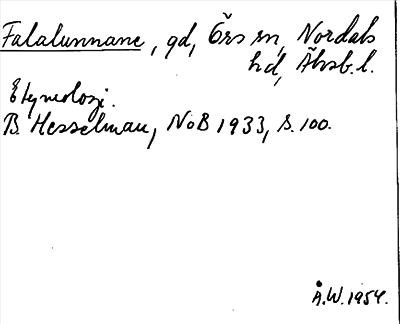 Falalunnane, gd, Örs sn, Nordals
hd, Älvsb. l.
Etymologi.
B. Hesselman, NoB 1933, s. 100.
Å.W. 1954.